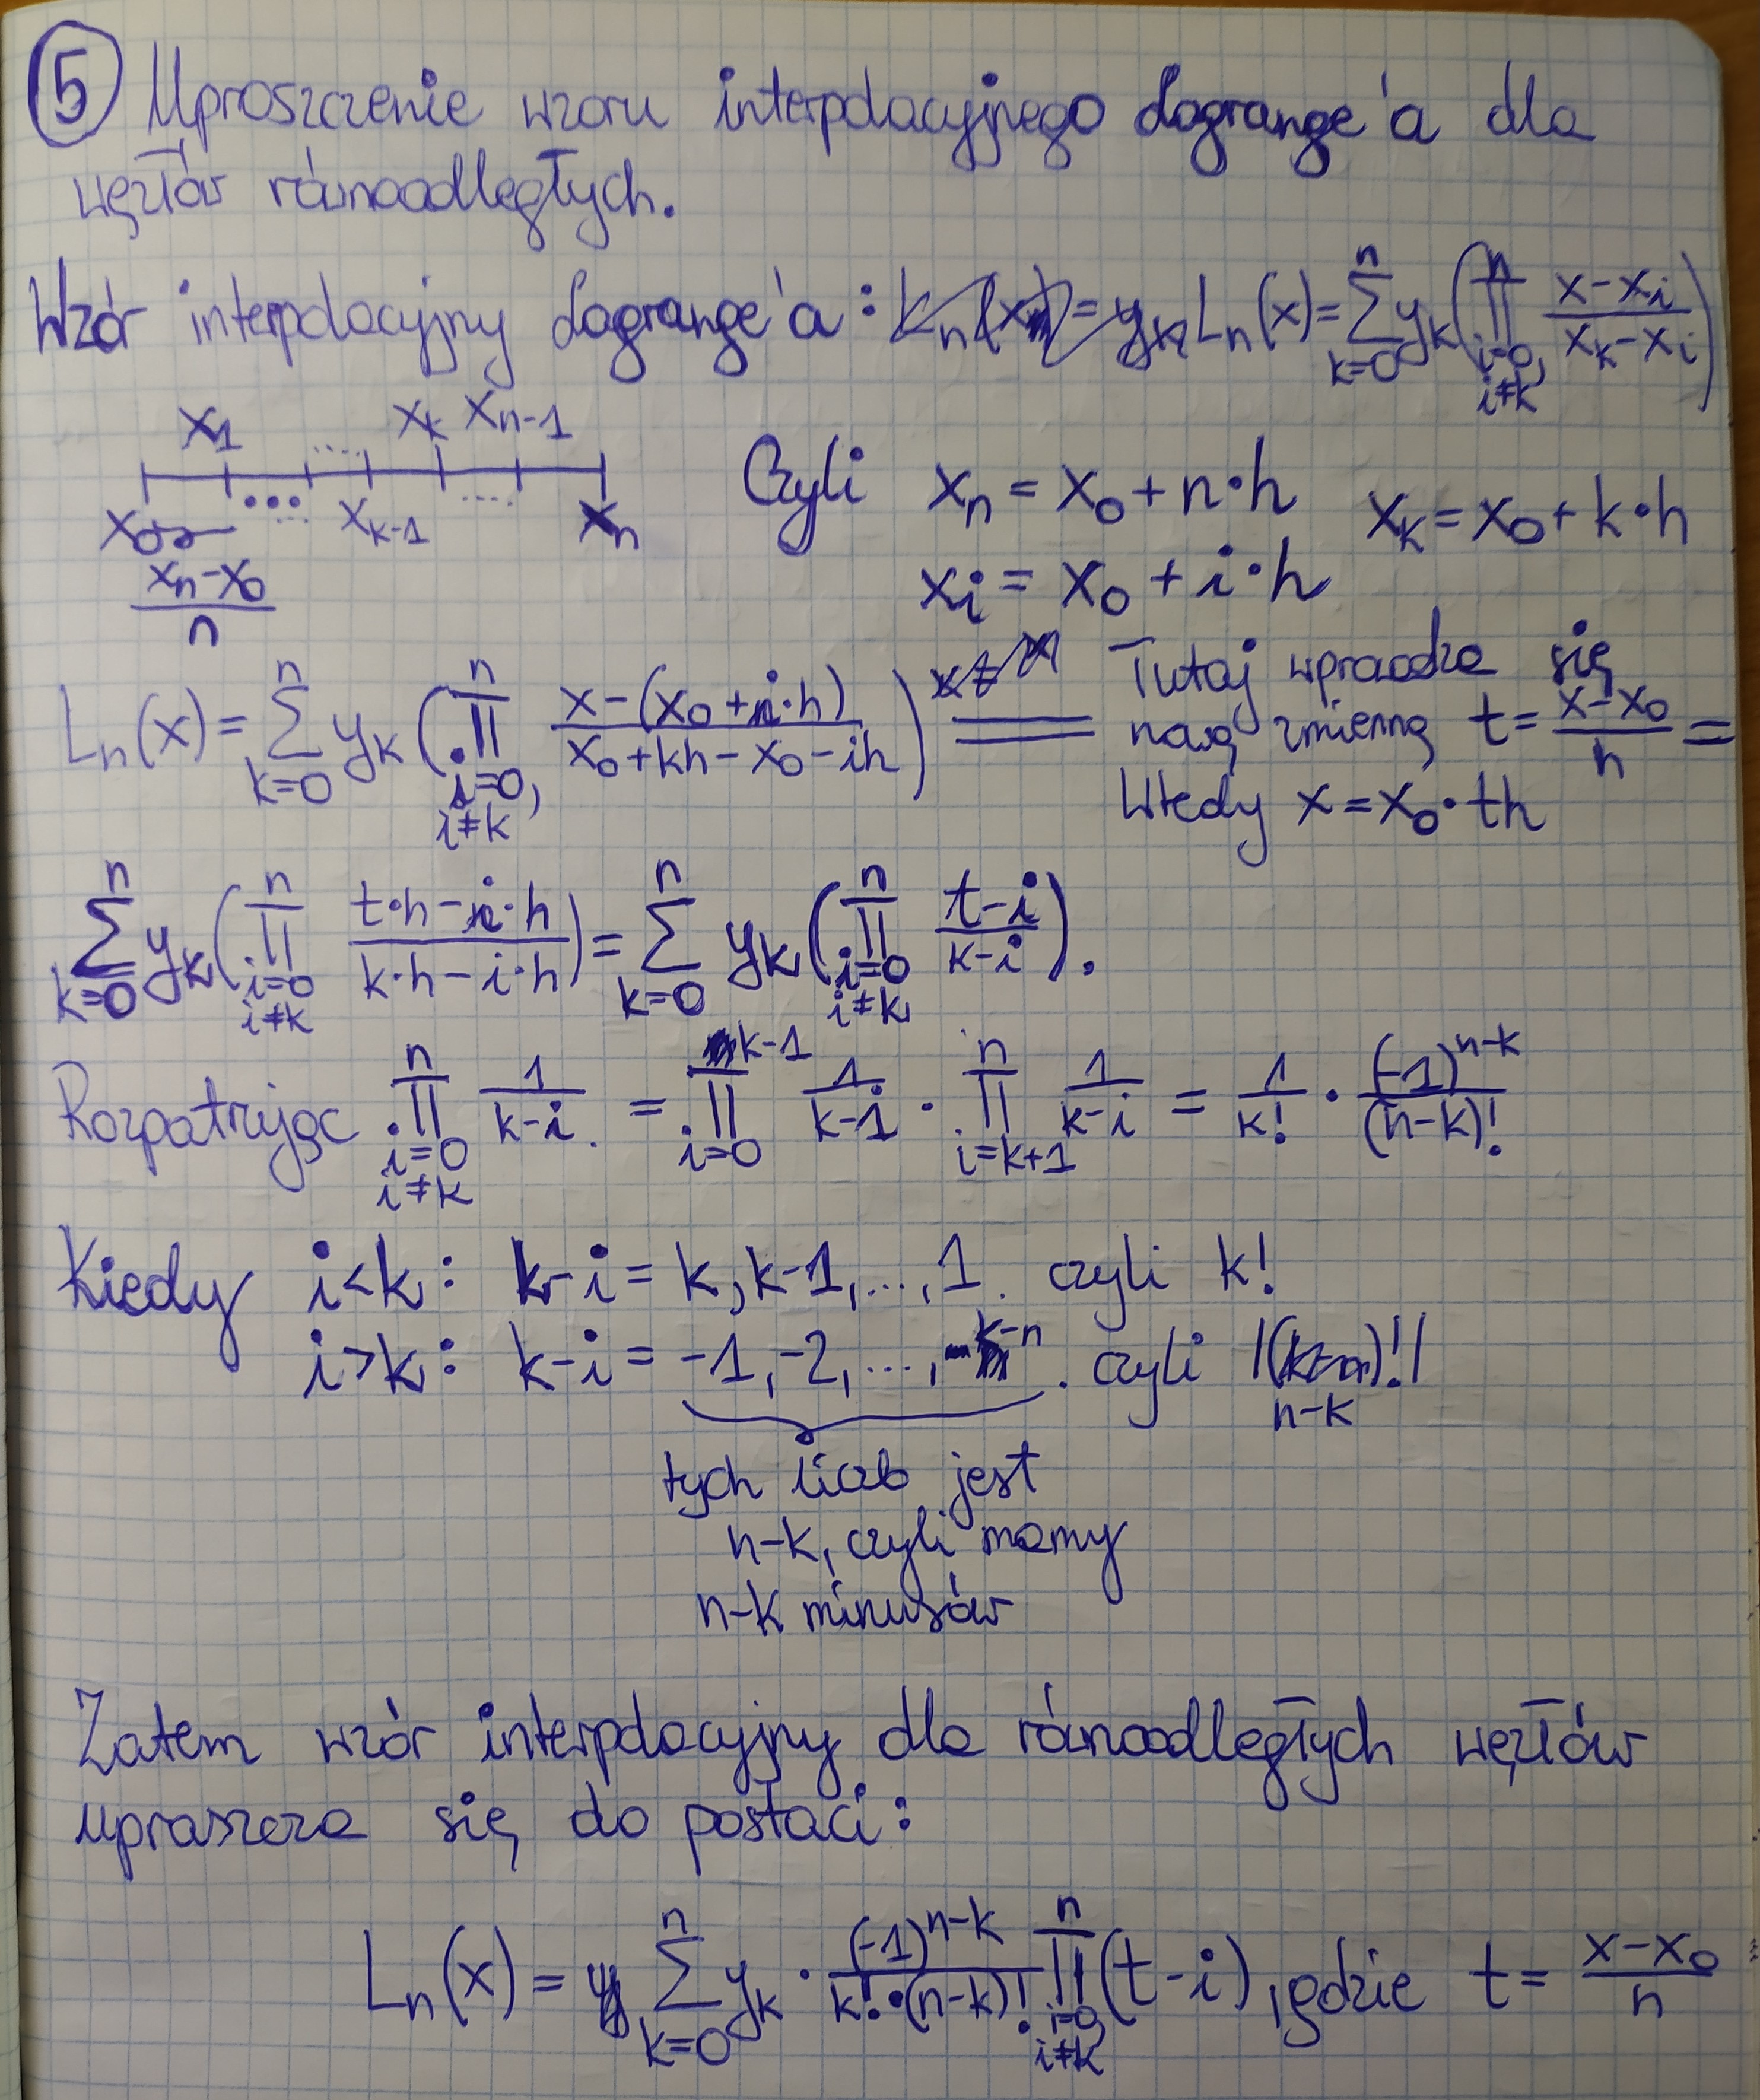 5 Uproszczenie wzoru interpolacyjnego Lagrange'a dla
węzłów równoodległych.
Wzór interpolacyjny Lagrange'a: L_n(x) = \sum_{k=0}^{n} y_k ( \prod_{i=0, i≠k}^{n} \frac{x-x_i}{x_k-x_i} )
x_1 ... x_k x_{n-1}
x_0 ... x_{k-1} ... x_n
\frac{x_n-x_0}{n}
Czyli x_n = x_0 + n·h x_k = x_0 + k·h
x_i = x_0 + i·h
L_n(x) = \sum_{k=0}^{n} y_k ( \prod_{i=0, i≠k}^{n} \frac{x-(x_0+i·h)}{x_0+kh-x_0-ih} ) = Tutaj wprowadza się
nową zmienną t = \frac{x-x_0}{h} =
Wtedy x = x_0·th
\sum_{k=0}^{n} y_k ( \prod_{i=0 i≠k}^{n} \frac{t·h-i·h}{k·h-i·h} ) = \sum_{k=0}^{n} y_k ( \prod_{i=0 i≠k}^{n} \frac{t-i}{k-i} ).
Rozpatrując \prod_{i=0 i≠k}^{n} \frac{1}{k-i} = \prod_{i=0}^{k-1} \frac{1}{k-i} · \prod_{i=k+1}^{n} \frac{1}{k-i} = \frac{1}{k!} · \frac{(-1)^{n-k}}{(n-k)!}
Kiedy i<k: k-i = k, k-1, ..., 1. czyli k!
i>k: k-i = -1, -2, ..., k-n. czyli |(k-n)!|
n-k
tych liczb jest
n-k, czyli mamy
n-k minusów
Zatem wzór interpolacyjny dla równoodległych węzłów
upraszcza się do postaci:
L_n(x) = \sum_{k=0}^{n} y_k · \frac{(-1)^{n-k}}{k!·(n-k)!} \prod_{i=0, i≠k}^{n} (t-i), gdzie t = \frac{x-x_0}{h}